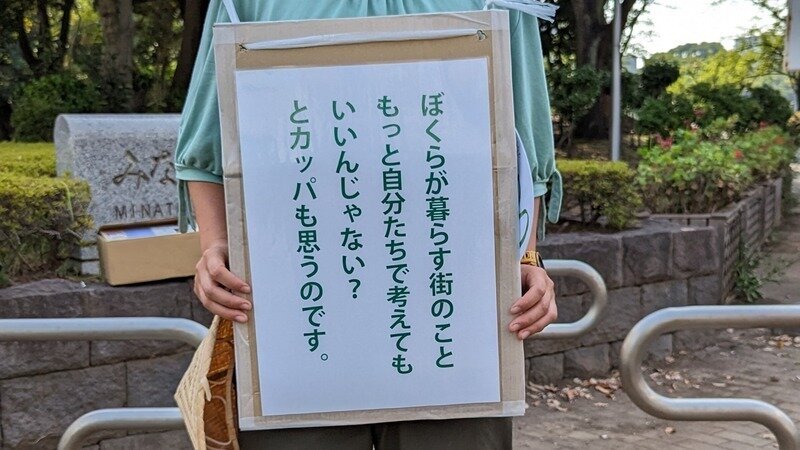 ぼくらが暮らす街のこと
もっと自分たちで考えても
いいんじゃない？
とカッパも思うのです。
みな
MINAT